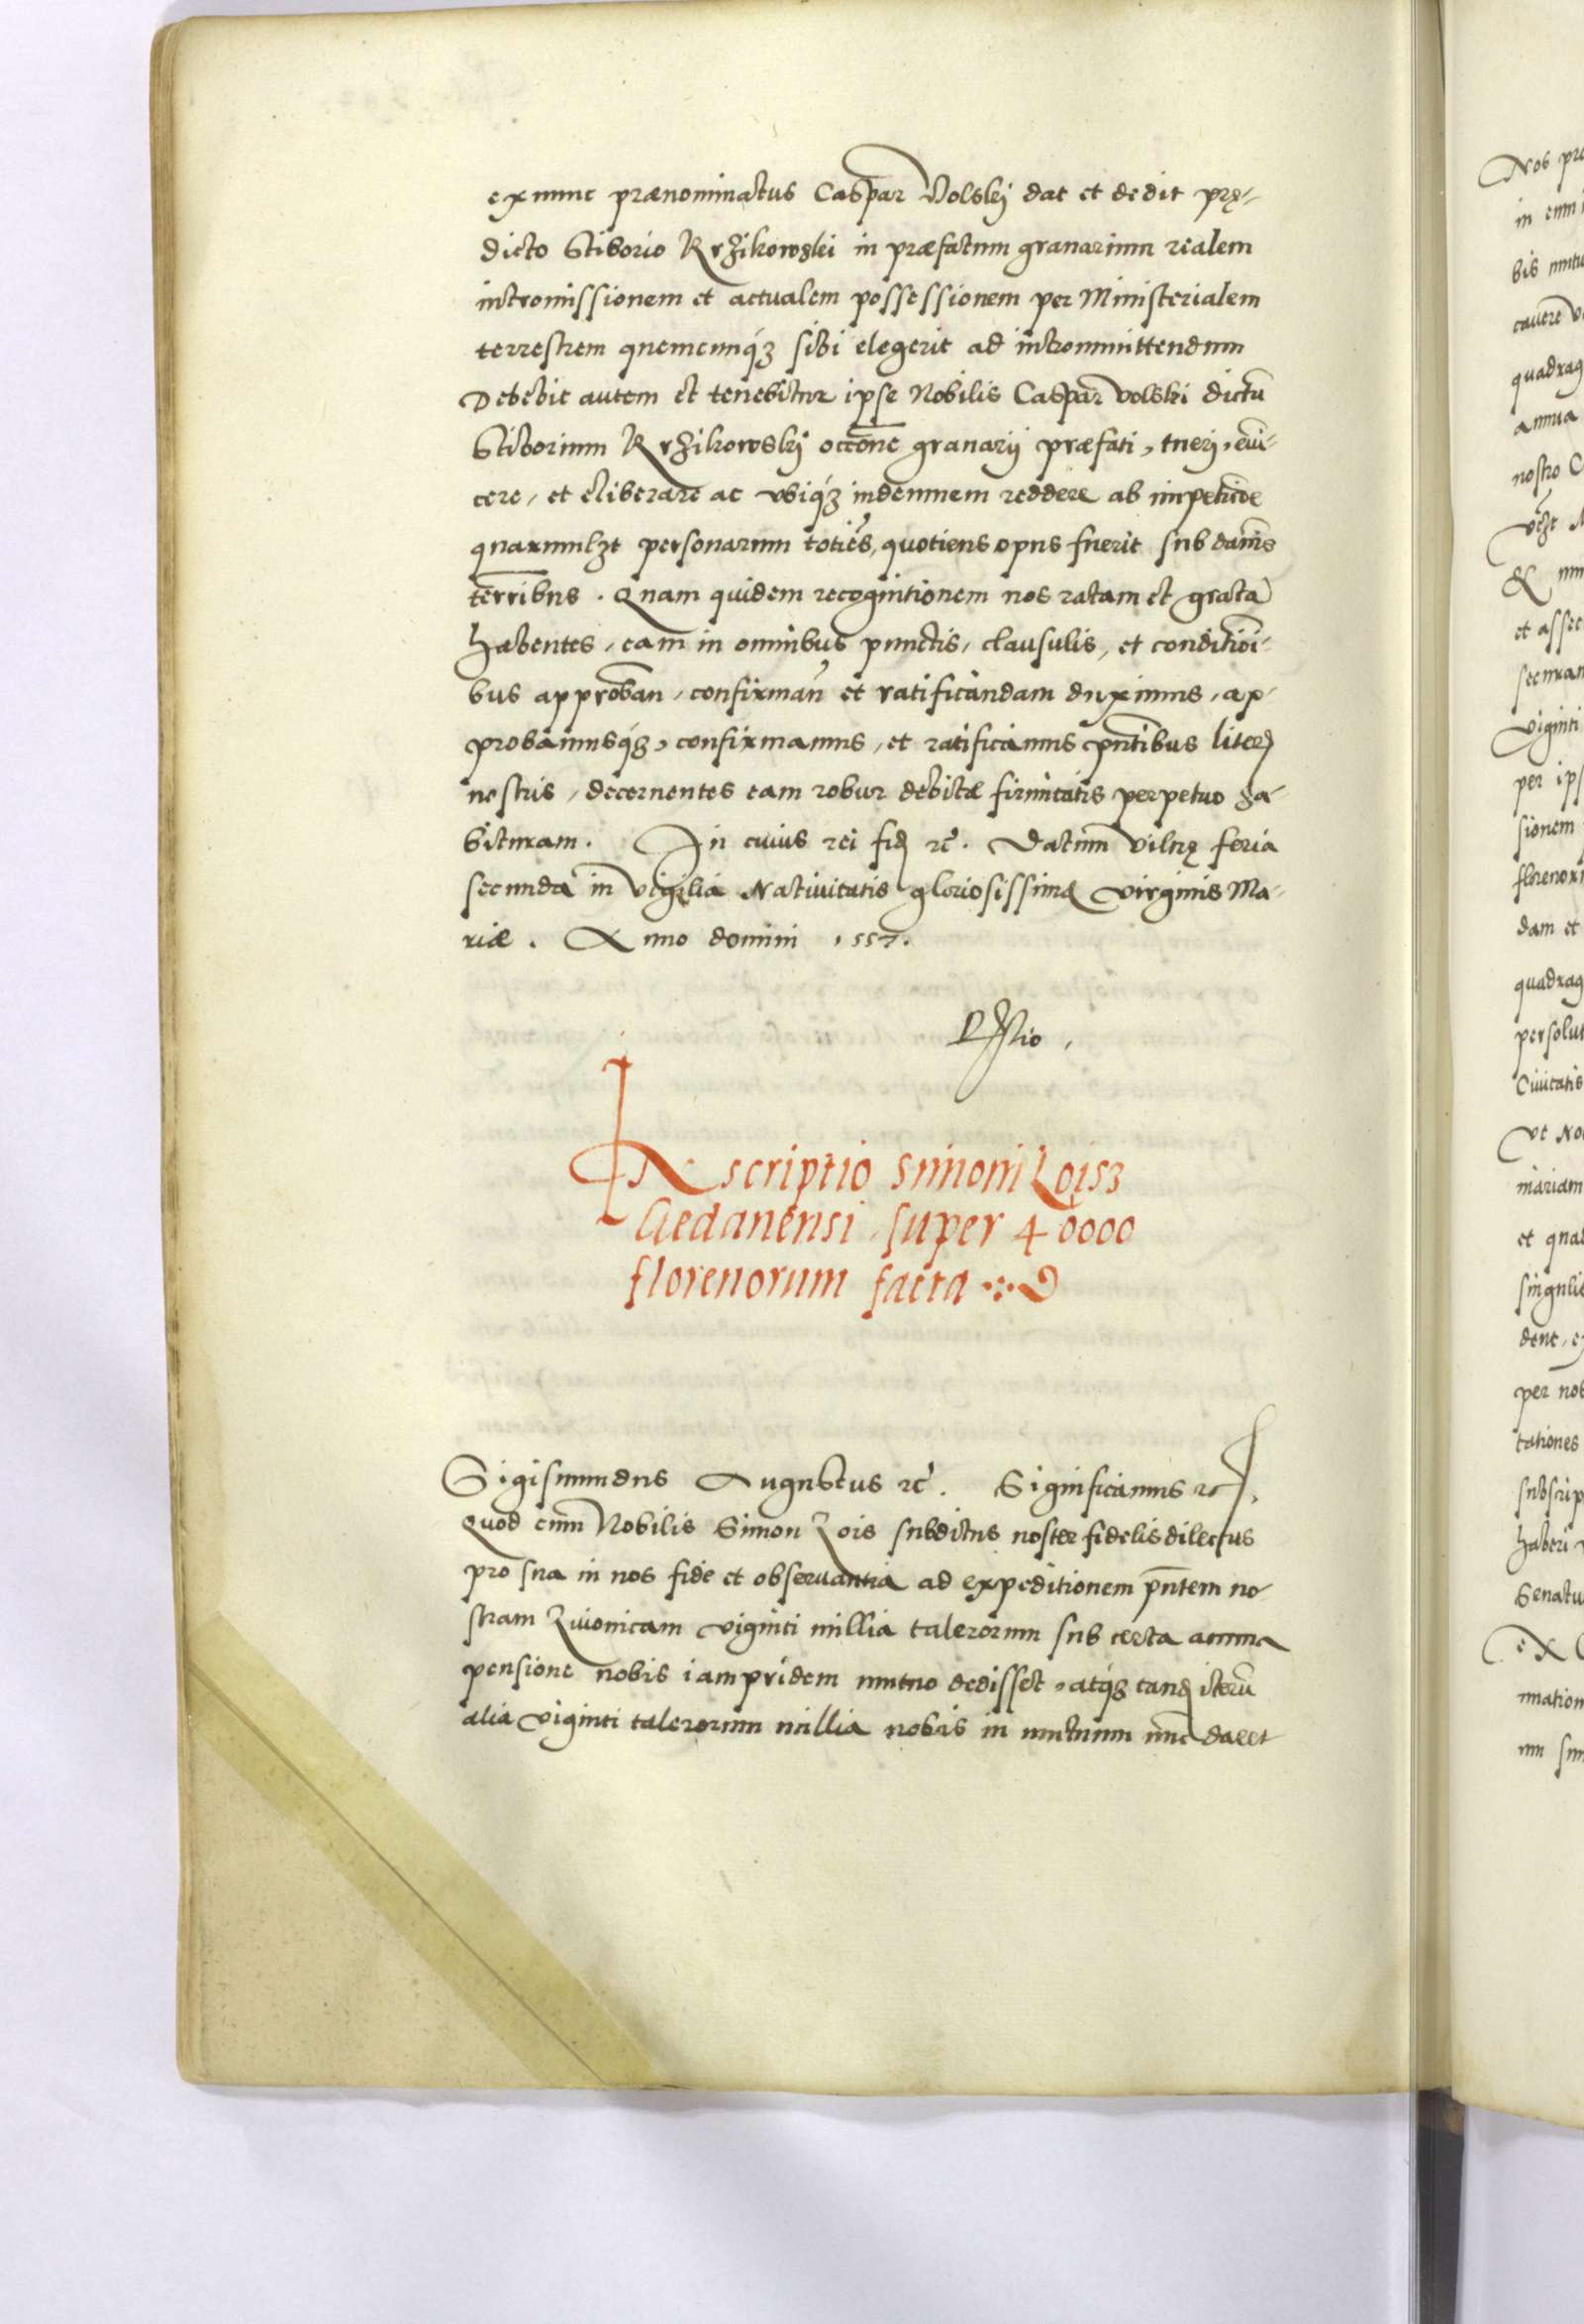 ex nunc prænominatus Caspar Volskj dat et dedit prę-
dicto Stiborio Krzikowski in præfatum granarium realem
intromissionem et actualem possessionem per Ministerialem
terrestrem quemcunqȝ sibi elegerit ad intromittendum
Debebit autem et tenebitur ipse Nobilis Caspar Volski dictū
Stiborium Krzikowskj occōne granarij præfati, tuerj, evi-
cere, et eliberare ac ubiqȝ indemnem reddere ab impeticōe
quarumlꝫt personarum totiēs, quotiens opus fuerit sub damīs
terrībus. Quam quidem recognitionem nos ratam et gratā
habentes, eam in omnibus punctis, clausulis, et conditiōi-
bus approbān, confirmān et ratificandam duximus, ap-
probamusqȝ, confirmamus, et ratificamus pn̄tibus literꝭ
nostris, decernentes eam robur debitæ firmitatis perpetuo ha-
bituram. In cuius rei fidꝭ rc̄. Datum Vilnę feria
secunda in vigilia Nativitatis gloriosissimę virginis Ma-
riæ. Anno domini 1557.
Inscriptio Simoni Loisȝ
Gedanensi super 40000
florenorum facta
Sigismundus Augustus rc̄. Significamus rc̄.
Quod cum Nobilis Simon Lois subditus noster fidelis dilectus
pro sua in nos fide et observantia ad expeditionem pn̄tem no-
stram Livonicam viginti millia talerorum sub certa annua
pensione nobis iampridem mutuo dedisset, atqȝ tandꝭ iterū
alia viginti talerorum millia nobis in mutuum nūc daret
Nos pr
in
bis mutu
cavere v
quadrag
annua
nostro C
et assec
securan
viginti
per ips
sionem
florenor
dam et
quadrag
persolut
Civitatis
Ut No
mariam
et qua
singulis
dent, e
per nos
tationes
subscrip
haberi v
Senatu
ex